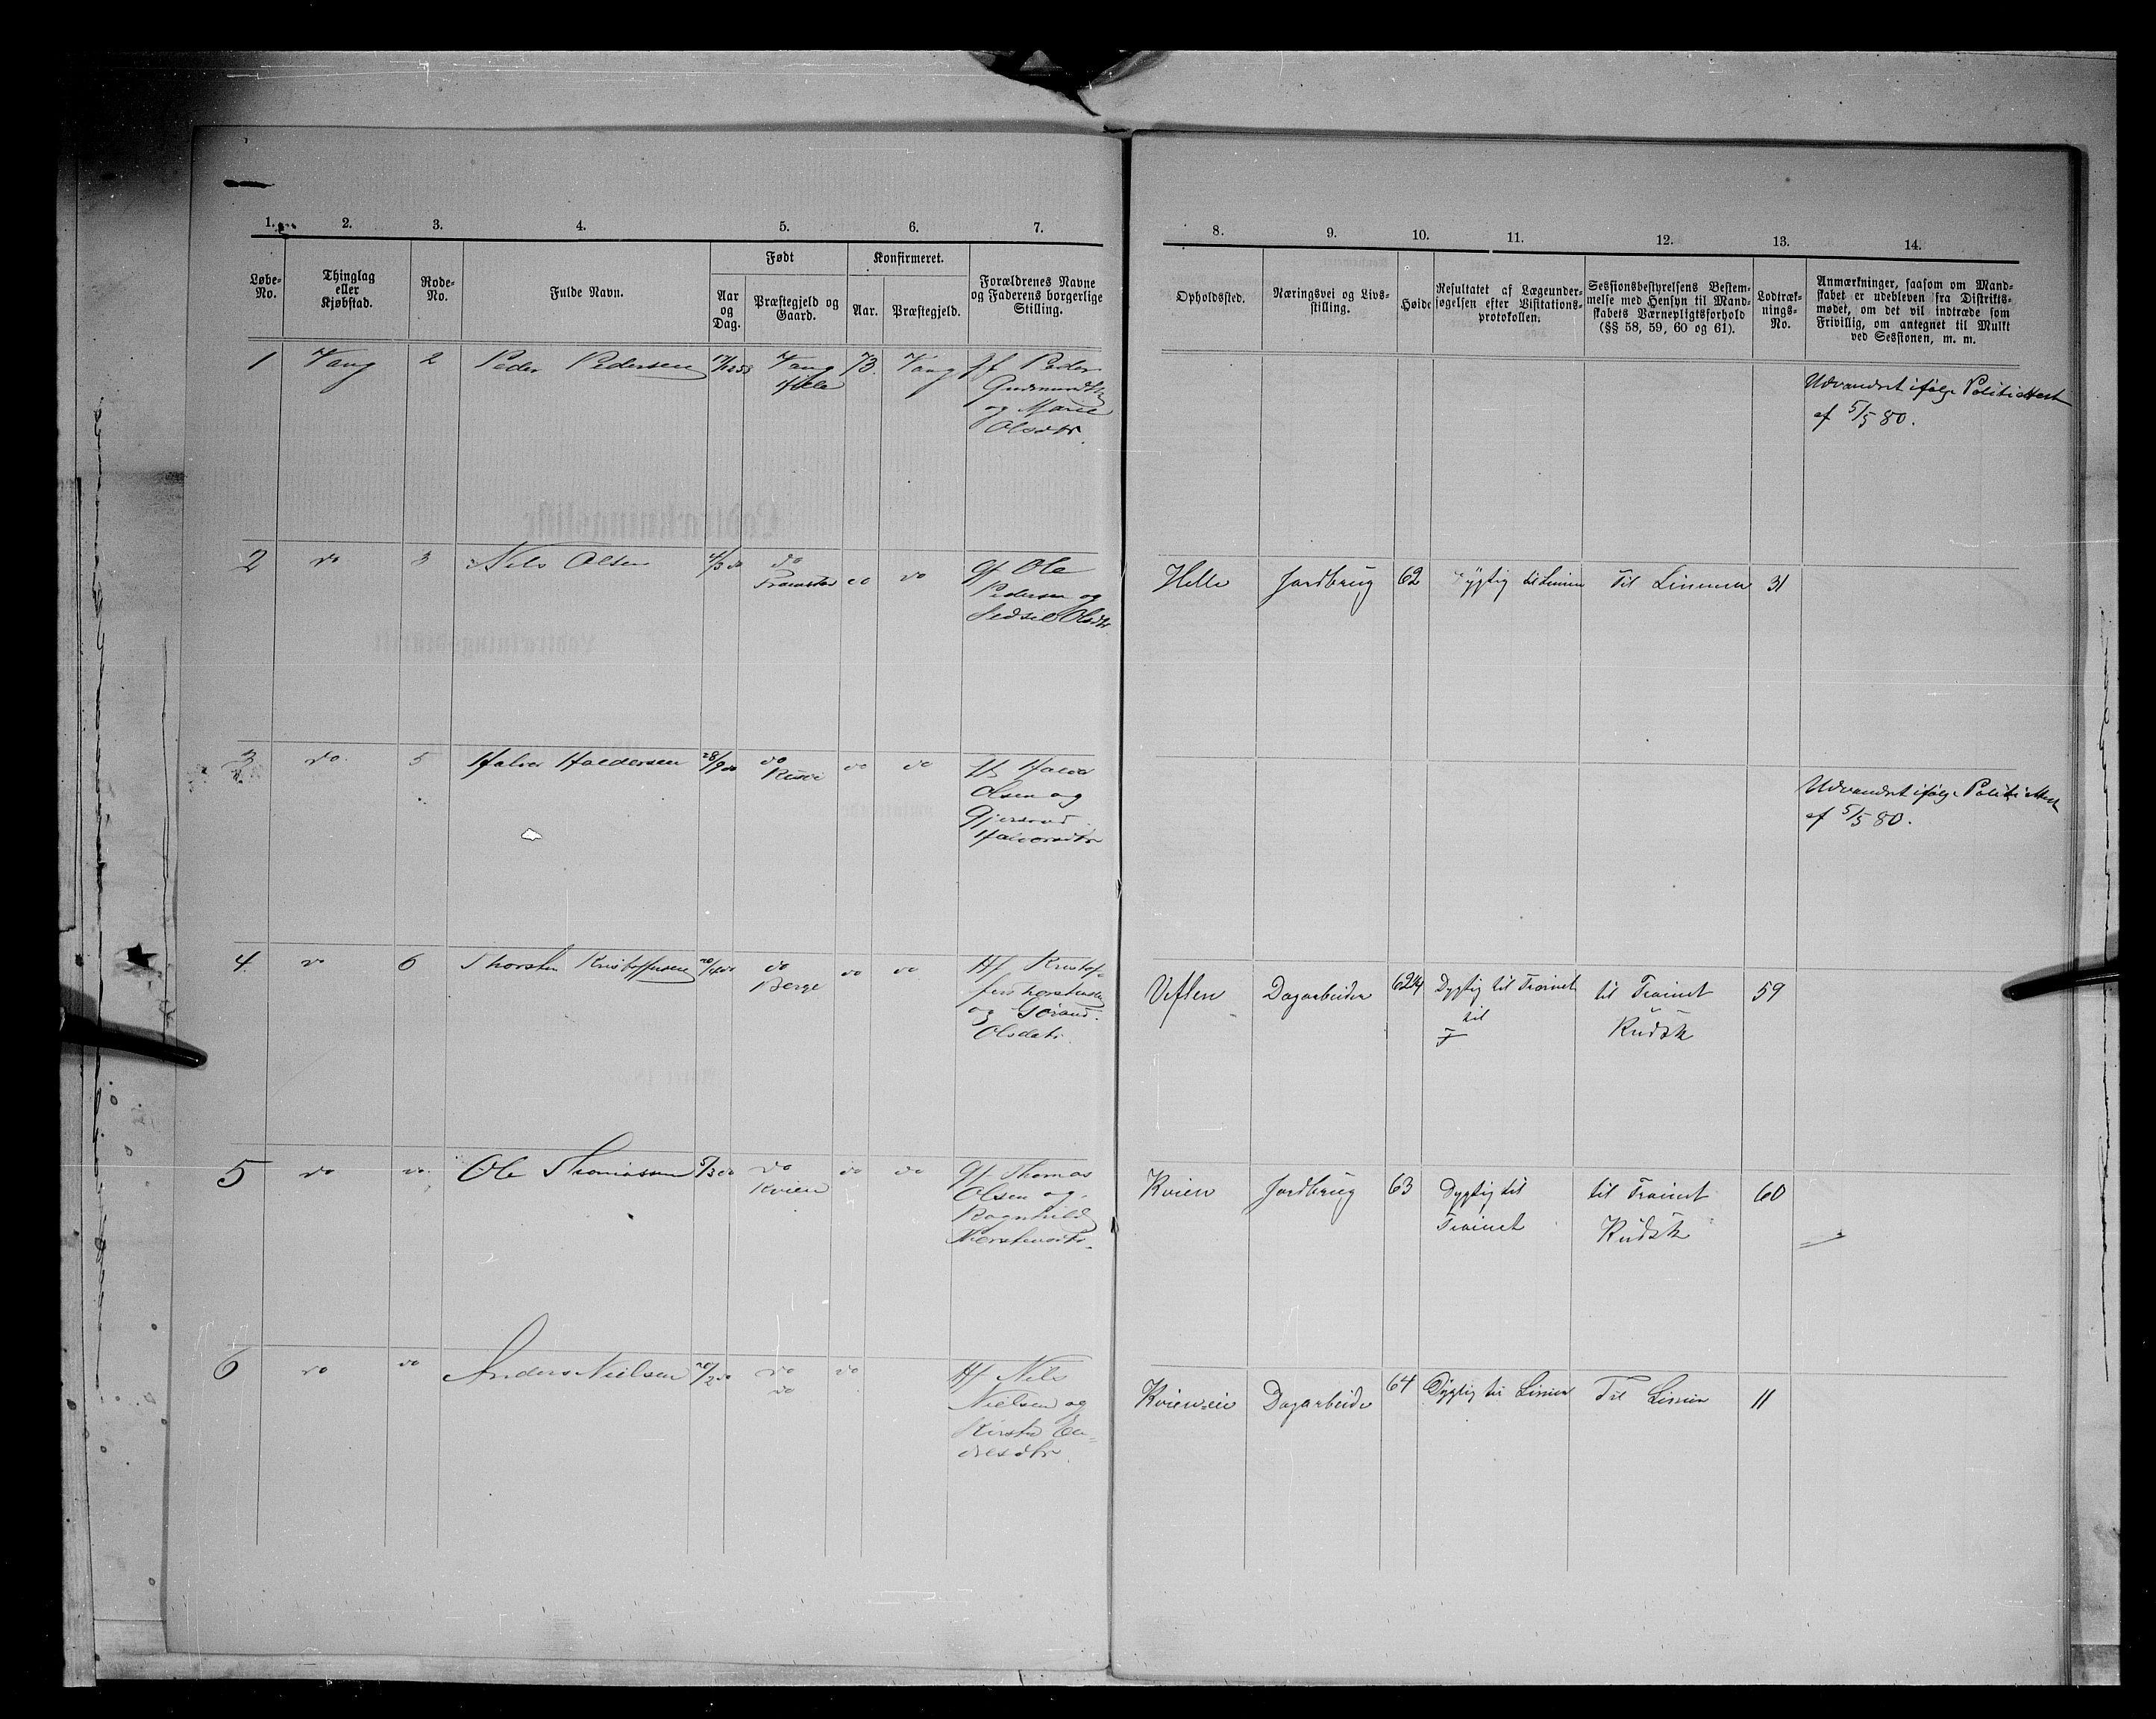 1. 2. 3. 4. 5. 6. 7.
Løbe-No. Thinglag eller Kjøbstad. Rode-No. Fulde Navn. Født Konfirmeret. Forældrenes Navne og Faderens borgerlige Stilling.
Aar og Dag. Præstegjeld og Gaard. Aar. Præstegjeld.
8. 9. 10. 11. 12. 13. 14.
Opholdssted. Næringsvei og Livsstilling. Høide Resultatet af Lægeundersøgelsen efter Visitationsprotokollen. Sessionsbestyrelsens Bestemmelse med Hensyn til Mandskabets Værnepligtsforhold (§§ 58, 59, 60 og 61). Lodtræknings-No. Anmærkninger, saasom om Mandskabet er udebleven fra Distriktsmødet, om det vil indtræde som Frivillig, om antegnet til Mulkt ved Sessionen, m. m.
1 Vang 2 Peder Pedersen Vang 73. Vang Peder
og Marie
Olsdtr.
Udvandret ifølge Politiattest
af 5/5 80.
2 do 3 Nils Olsen do do do Gf Ole
Pedersen og
Sidsel Olsdtr
Helle Jordbrug 62 Dygtig til Linien Til Linien 31
3 do 5 28/9 do do do do Halvor
Olsen og
Halvorsdtr
Udvandret ifølge Politiattest
af 5/5 80.
4. do 6 Thorsten Kristoffersen do do do do
Berge
og
Olsdatr.
Dagarbeider 62 1/4 Dygtig til Trainet til Trainet 59
til Kudsk
5 do do Ole Thomassen 5/3 do do do do Gf Thomas
Kvien Olsen og
Ragnhild
Thorstensdtr.
Kvien Jordbrug 63 Dygtig til til Trainet 60
Trainet Kudsk
6 do do Anders Nielsen 20/2 do do do Hf Nils
do Nielsen og
Kirsti En-
dresdtr.
Kvienseie Dagarbeider 64 Dygtig til Linien Til Linien 11